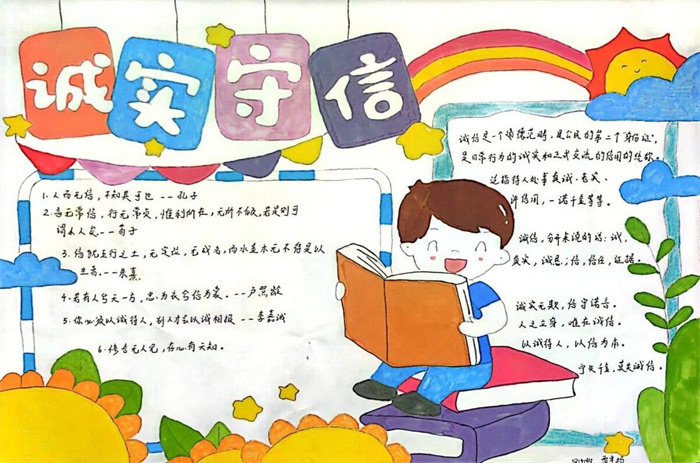 诚实守信
1. 人而无信，不知其可也 --- 孔子
2. 言无常信，行无常贞，惟利所在，无所不倾，若是则可
谓小人矣 --- 荀子
3. 信犹五行之土，无定位，无成名，而水金木无不待是以
生者 --- 朱熹
4. 若有人兮天一方，忠为衣兮信为裳。--- 卢照龄
5. 你必须以诚待人，别人才会以诚相报 --- 李嘉诚
6. 传言无人见，在心有天知。
诚信是一个道德范畴，是公民的第二个"身份证"，
是日常行为的诚实和正式交流的信用的统称。
泛指待人处事真诚、老实、
讲信用，一诺千金等。
诚信，分开来说的话：诚，
真实，诚恳；信，信任，证据。
诚实无欺，信守诺言。
人之立身，唯在诚信。
以诚待人，以信为本。
宁失千金，莫失诚信。